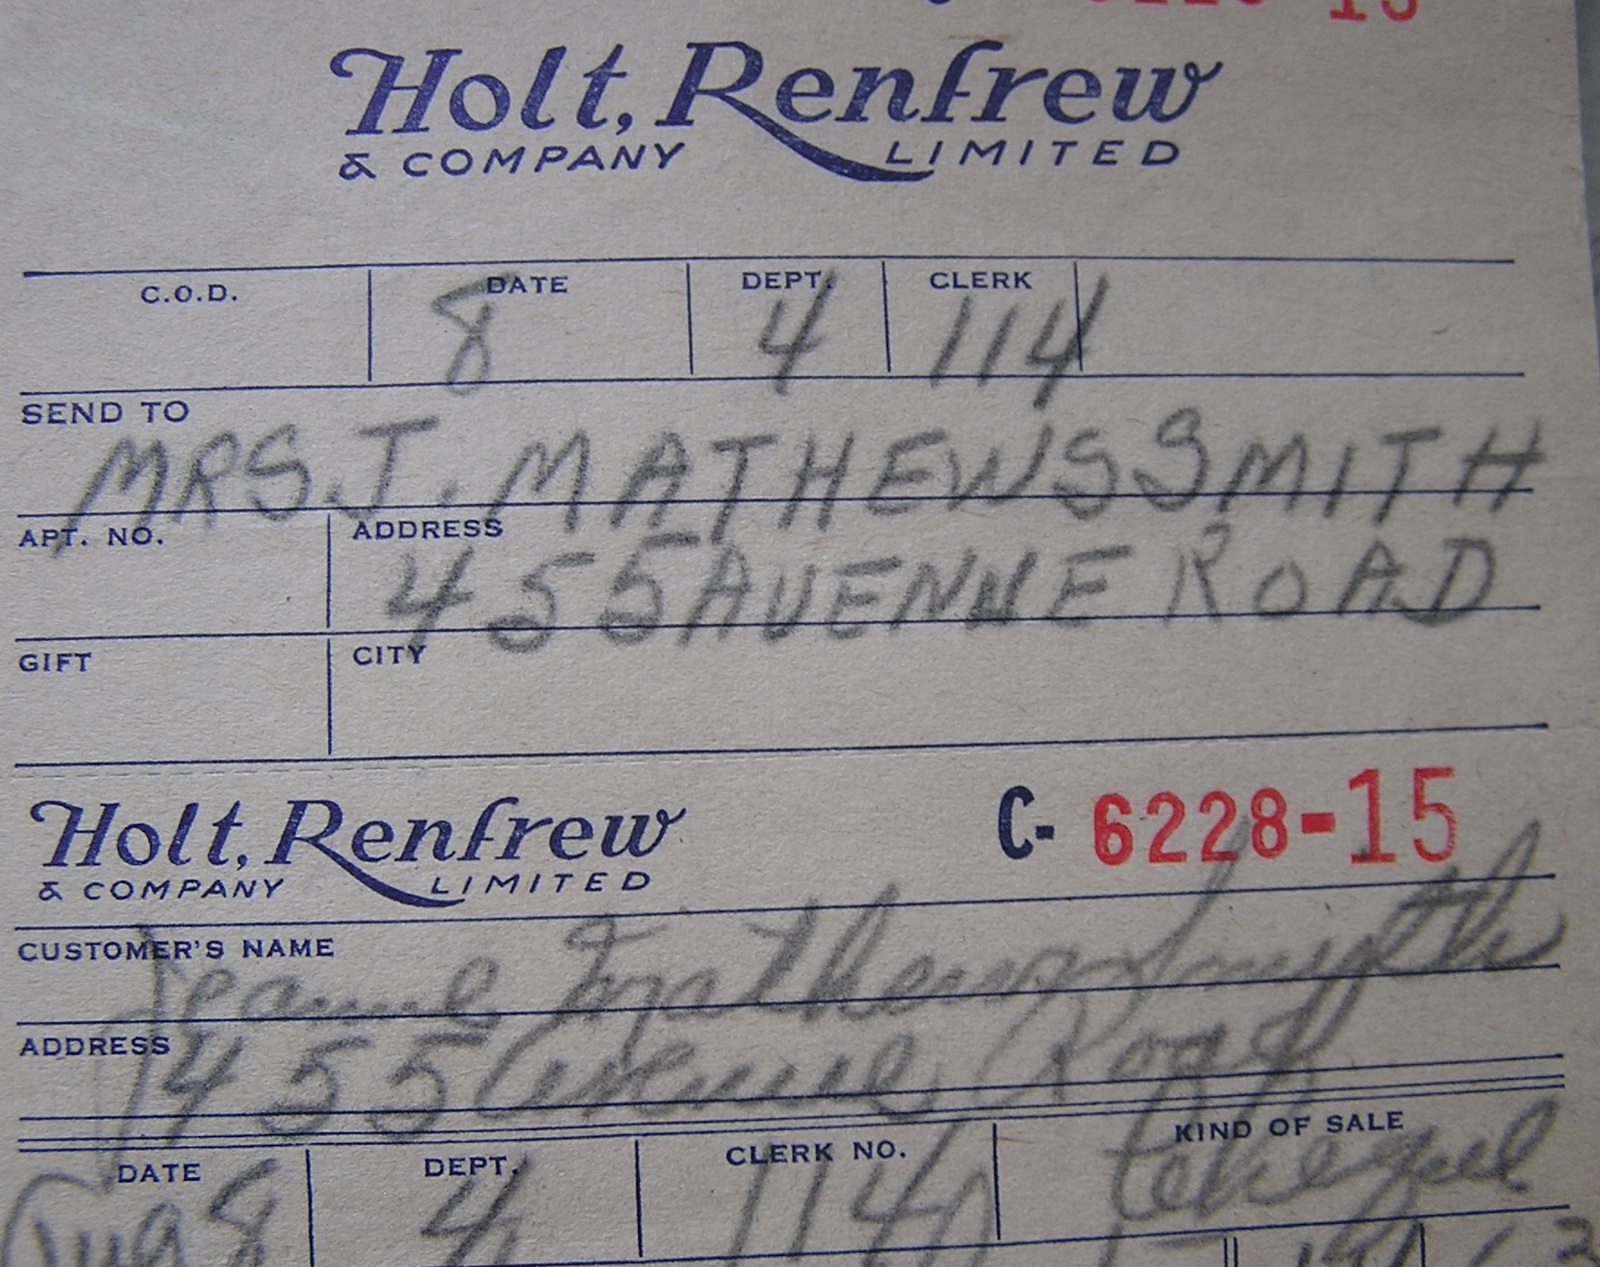 15
Holt, Renfrew
& COMPANY LIMITED
C.O.D. DATE DEPT. CLERK
8 4 114
SEND TO
MRS. J. MATHEWSSMITH
APT. NO. ADDRESS
455 AVENUE ROAD
GIFT CITY
Holt, Renfrew C- 6228-15
& COMPANY LIMITED
CUSTOMER'S NAME
Jeanne Mathews Smyth
ADDRESS
455 Avenue Road
DATE DEPT. CLERK NO. KIND OF SALE
Aug 8 4 114 cheque